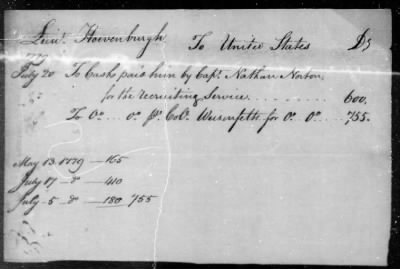 Lieut. Hovenburgh To United States Dr
1779
July 20 To Cash paid him by Capt. Nathan Norton
for the recruiting Service ........ 600.
To Do ... Do pr. Col. Weisenfelts for Do Do .... 755.
May 13. 1779 — 165
July 17 - do — 410
July - 5 - do — 180 / 755